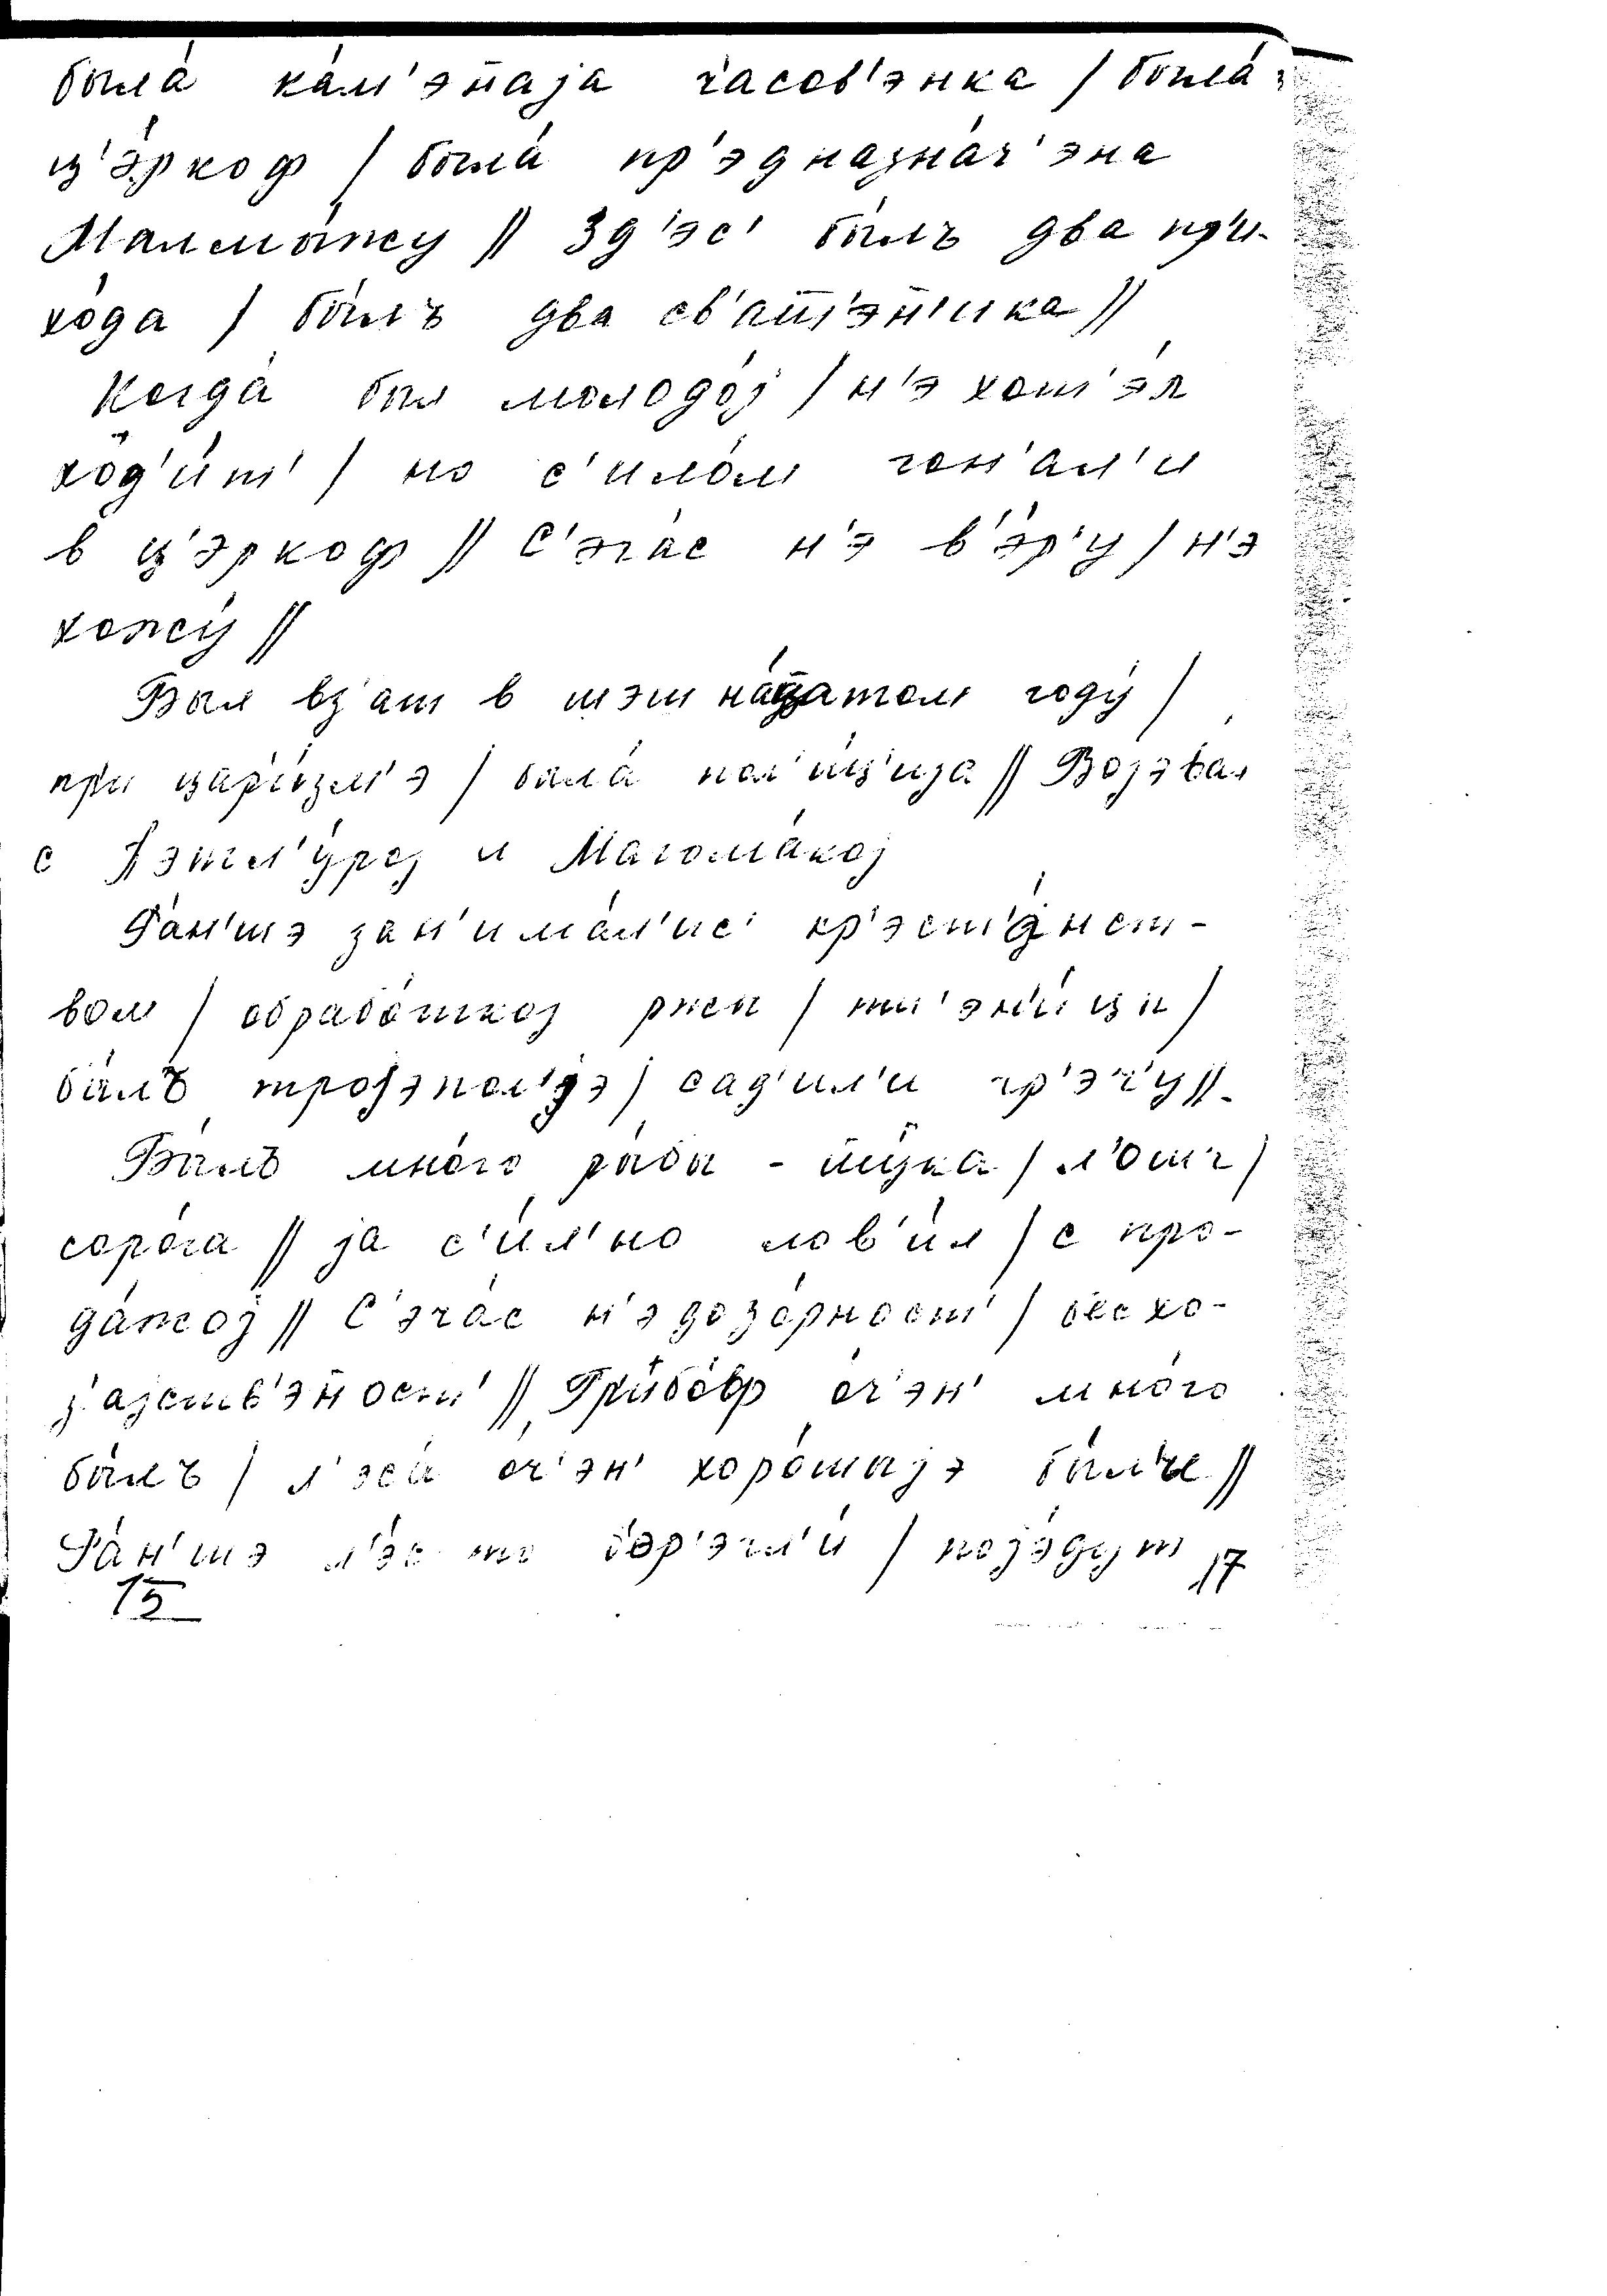 была́ ка́м'эн̄аjа часов'энка / была́
ц'э́ркоф / была́ пр'эдназна́ч'эна
Малмы́жу // Зд'эс' бы́лъ два пр'и-
хо́да / бы́лъ два св'аш'э́н̄'ика //
Когда́ был молодо́j / н'э хот'э́л
ход'и́т' / но с'ило́м гон'ал'и
в ц'э́ркоф // С'эча́с н'э в'э́р'у / н'э
хожу́ //
Был вз'ат в шэшна́цатом году́ /
при цар'и́зм'э / была́ пол'и́ц'иjа // Воjэвал
с Пэтл'у́роj и Магома́коj
Ра́н'шэ зан'има́л'ис' кр'эст'а́нст-
вом / обрабо́ткоj ржы / пш'эн'и́цы /
бы́лъ троjэпол'jэ / сад'ил'и гр'э́ч'у //
Бы́лъ мно́го ры́бы - ш̄у́ка / л'ош'ч /
соро́га // jа с'и́л'но лов'и́л / с про-
да́жоj // С'эча́с н'эдозо́рност' / бесхо-
з'аjств'эн̄ост' // Грибо́ф о́ч'эн' мно́го
бы́лъ / л'эса́ о́ч'эн' хоро́шыjэ были //
Ра́н'шэ л'эс-то б'эр'эгл'и́ / поjэ́дут
15 17